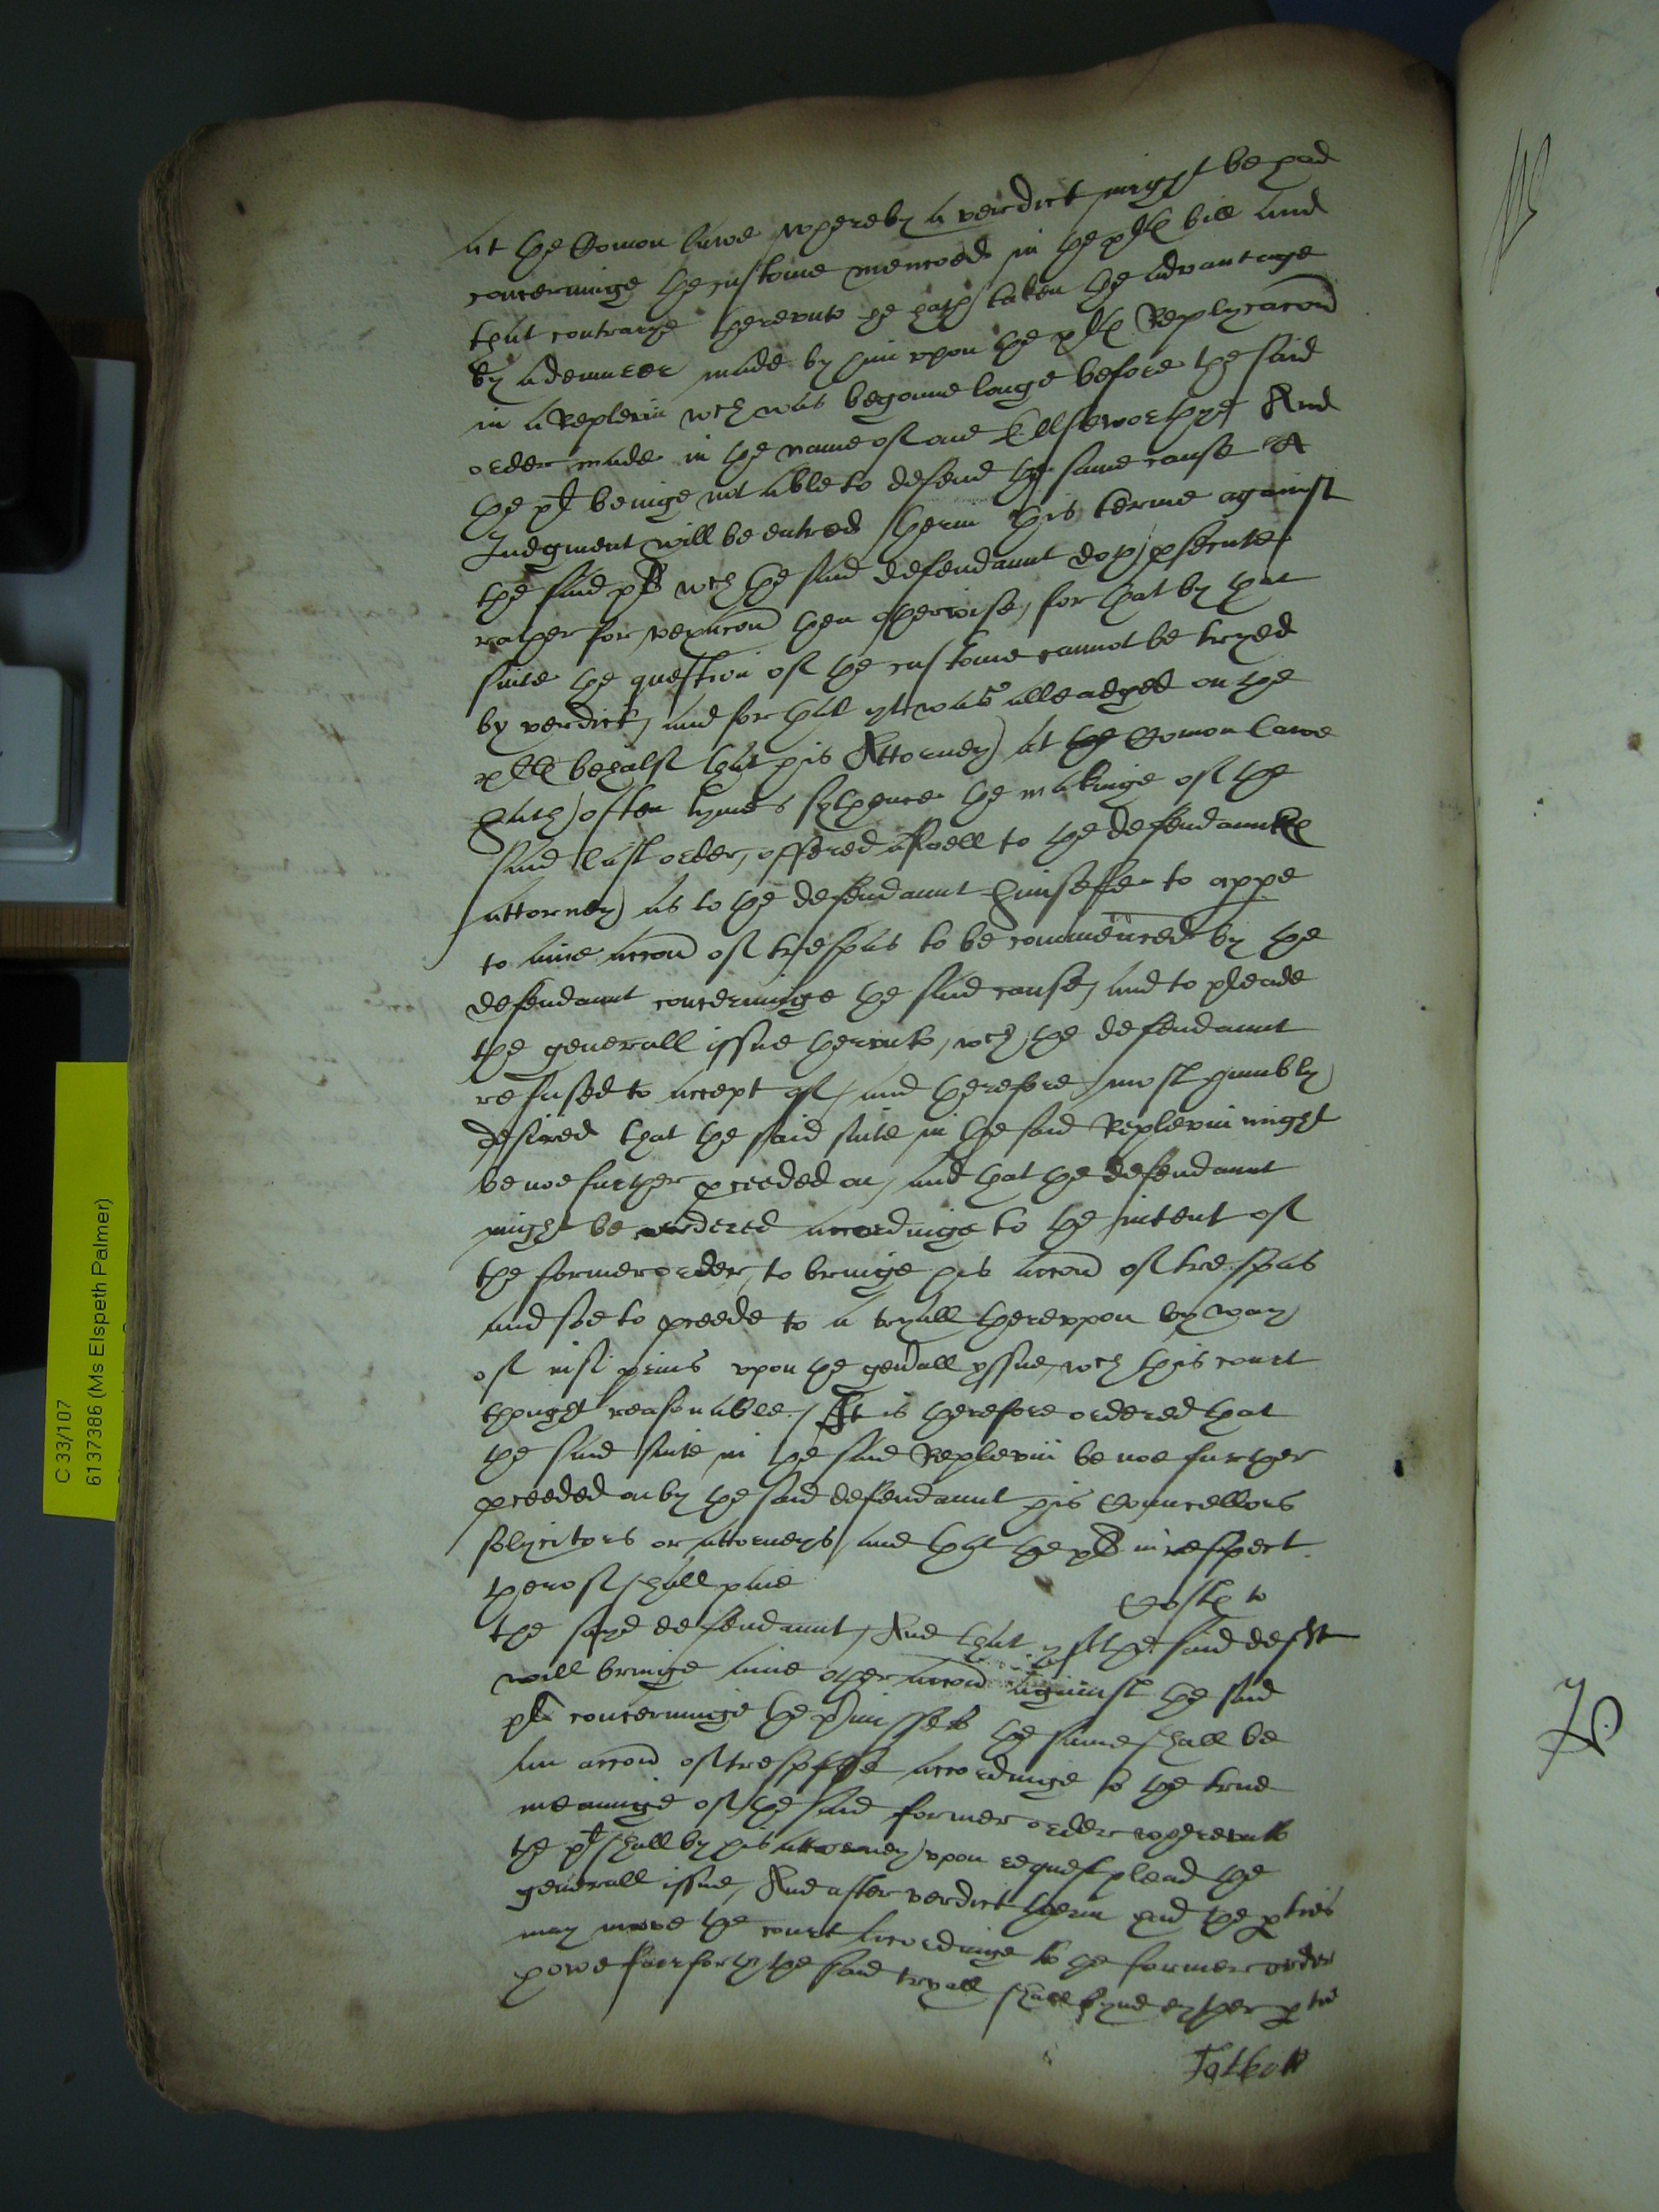 at the Comon lawe whereby a verdict might be had
concerninge the custome mencoed in the pltes bill and
that contrarye therevnto he hath taken the advantage
by a demurrer made by him vpon the pltes Replycacon
in a Replevin wch was begonne longe before the said
order made in the name of one Ellsworthye And
the plt beinge not able to defend the same cause A
Judgment will be entred therin this terme against
the said plt wch the said defendaunt doth psecute
rather for vexacon then otherwise, for that by that
suite the question of the custome cannot be tryed
by verdict, and for that yt was alleadged on the
pltes behalf that his Attorney at the Comon Lawe
hath often tymes sythence the makinge of the
said last order, offered aswell to the defendauntes
attorney as to the defendaunt himselfe to appe
to anie accon of trespas to be commenced by the
defendaunt concerninge the said cause, and to pleade
the generall issue thervnto, wch the defendaunt
refused to accept of, and therefore most humbly
desired that the said suite in the said Replevin might
be noe further pceeded on, and that the defendaunt
might be ordered accordinge to the intent of
the former order, to bringe his accon of trespas
and soe to pceede to a tryall therevpon by way
of nisi prius vpon the genall yssue, wch this court
thought reasonable. / It is therefore ordered that
the said suite in the said Replevin be noe further
pceeded on by the said defendaunt his Councellors
solycitors or attorneys, and that the plt in respect
therof shall paie Costes to
the sayd defendaunt, And that yf the said deft
will bringe anie other accon against the said
plt concerninge the pmisses the same shall be
an accon of trespasse accordinge to the true
meaninge of the said former order wherevnto
the plt shall by his attorney vpon request plead the
generall issue, And after verdict therin had the pties
may move the court accordinge to the former order
howe farforth the said tryall shall bynd eyther ptie
Talbott
C 33/107
6137386 (Ms Elspeth Palmer)